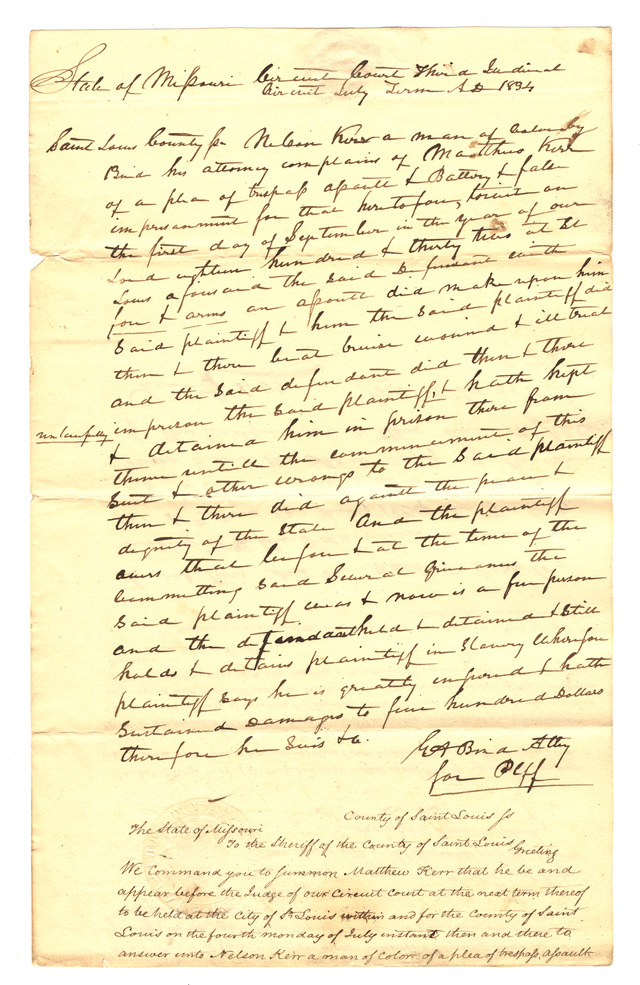 State of Missouri Circuit Court Third Judicial
Circuit July Term A D 1834
Saint Louis County ss Nelson Kerr a man of Color by
Bird his attorney complains of Matthew Kerr
of a plea of trespass assault & Battery & false
imprisonment for that heretofore, towit on
the first day of September in the year of our
Lord eighteen hundred & thirty two at St
Louis aforesaid the said Defendant with
force & arms an assault did make upon him
said plaintiff & him the said plaintiff did
then & there beat bruise wound & illtreat
and the said defendant did then & there
unlawfully
imprison the said plaintiff, & hath kept
& detained him in prison there from
thence untill the commencement of this
Suit & other wrongs to the said plaintiff
then & there did against the peace &
dignity of the State And the plaintiff
avers that before & at the time of the
Committing said Several Grievances the
said plaintiff was & now is a free person
and the defendant held & detained & still
holds & detains plaintiff in Slavery Wherefore
plaintiff says he is greatly injured & hath
Sustained Damages to five hundred Dollars
therefore he Sues &c.
G A Bird Atty
for Plff
County of Saint Louis ss
The State of Missouri
To the Sheriff of the County of Saint Louis Greeting
We Command you to summon Matthew Kerr that he be and
appear before the Judge of our Circuit court at the next term thereof
to be held at the City of St Louis within and for the County of Saint
Louis on the fourth monday of July instant then and there to
answer unto Nelson Kerr a man of Color of a plea of trespass, assault